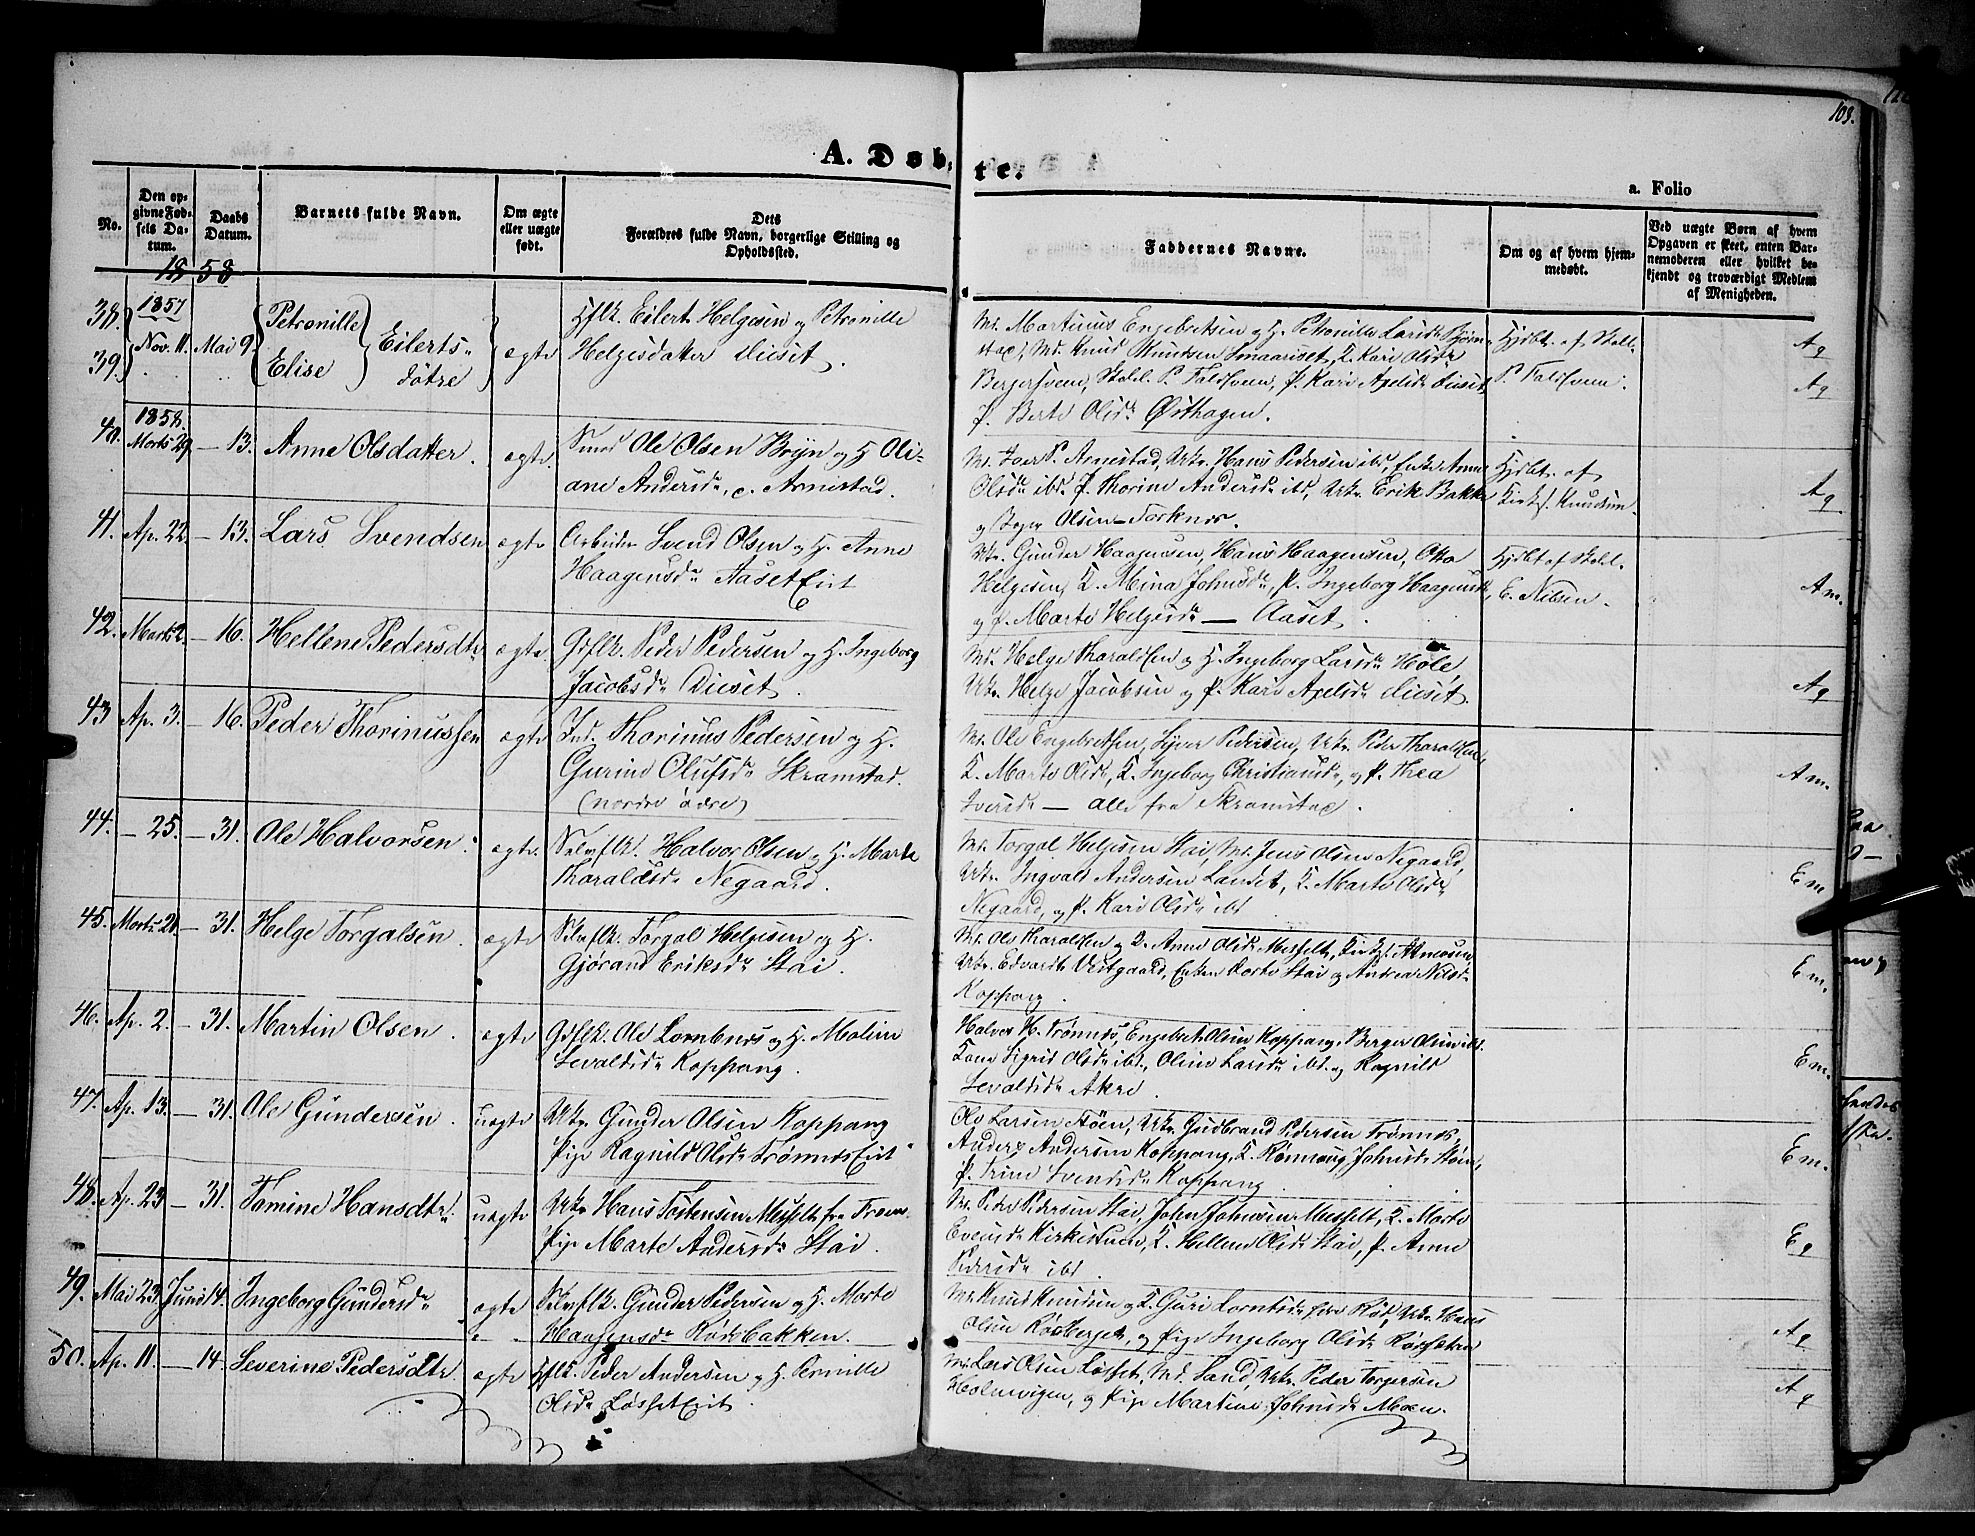 108.
A. Døb-
te.
a. Folio
No.
Den op-
givne Fød-
sels Da-
tum.
Daabs
Datum.
Barnets fulde Navn.
Om ægte
eller uægte
født.
Dets
Forældres fulde Navn, borgerlige Stilling og
Opholdssted.
Faddernes Navne.
Om og af hvem hjem-
medøbt.
Ved uægte Børn af hvem
Opgaven er skeet, enten Bar-
nemoderen eller hvilket be-
kjendt og troværdigt Medlem
af Menigheden.
1858
38.
39.
1857
Nov. 11.
Mai 9.
Petronille
Elise
Eilerts-
døtre
ægte
Eilert Helgesen og Petronille
Helgesdatter Dieset.
Md. Martinus Engebretsen og H. Petronille Larsdr
Md. Knud Knudsen K. Kari Olsdr
P. Kari Axelsdr Dieset,
P. Berte Olsdr Østhagen.
Hjdbt. af Skoll.
P. Faldsveen.
Ag
Ag
40.
1858.
Marts 29.
— 13.
Anne Olsdatter.
ægte.
Smed Ole Olsen Bryn og H. Oli-
ane Andersdr, e. Arnestad.
Md. Iver P. Arnestad, Ukr. Hans Pedersen ibd, Enke Anne
Olsdr ibd. P. Thorine Andersdr ibd, Ukr. Erik Bakke
og Olsen
Hjdbt. af
Kirks. Knudsen.
Ag
41.
Ap. 22.
— 13.
Lars Svendsen
ægte
Arbeider Svend Olsen og H. Anne
Haagensdr Aaset Eiet
Ukr. Gunder Haagensen, Hans Haagensen, Otto
Helgesen, K. Mina Johnsdr, P. Ingeborg Haagensdr,
og P. Marte Helgesdr — Aaset.
Hjdbt af Skoll.
E. Nilsen.
Am.
42.
Marts 2.
— 16.
Hellene Pedersdtr
ægte.
Gdflk. Peder Pedersen og H. Ingeborg
Jacobsdr Dieset.
Md. Helge Tharaldsen og H. Ingeborg Larsdr Hole,
Ukr. Helge Jacobsen og P. Kari Axelsdr Dieset.
Ag
43
Ap. 3.
— 16.
Peder Thorinussen
ægte
Ind. Thorinus Pedersen og H.
Gurine Olufsdr Skramstad.
(nordre øvre)
Md. Ole Engebretsen, Syver Pedersen, Ukr. Peder Tharaldsen,
K. Marte Olsdr, K. Ingeborg Christiansdr, og P. Thea
Iversdr — alle fra Skramstad.
Am.
44.
— 25.
— 31.
Ole Halvorsen.
ægte.
Selvflk. Halvor Olsen og H. Marte
Tharaldsdr Negaard.
Md. Torgal Helgesen Stai, Md. Jens Olsen Negaard,
Ukr. Ingvald Andersen Landet, K. Marte Olsdr
Negaard, og P. Kari Olsdr ibd
Em
45.
Marts 21.
— 31.
Helge Torgalsen.
ægte
Selvflk. Torgal Helgesen og H.
Gjørand Eriksdr Stai.
Md. Ole Tharaldsen og K. Anne Olsdr Messelt,
Ukr. Edvardt Vestgaard, Enken Marte Stai og Andrea Nilsdr
Koppang.
Em.
46.
Ap. 2.
— 31.
Martin Olsen.
ægte
Gdflk. Ole Lornbnes og H. Malene
Sevaldsdr Koppang.
Halvor H. Trønnes, Engebret Olsen Koppang, Berger Olsen ibd.
Kone Sigrid Olsdr ibd., Oline Larsdr ibd. og Ragnild
Sevaldsdr Akre.
Em.
47.
Ap. 13.
— 31.
Ole Gundersen.
uægte
Ukr. Gunder Olsen Koppang
Pige Ragnild Olsdr Trønnes Eiet
Ole Larsen Støen, Ukr. Gudbrand Pedersen Trønnes,
Anders Andersen Koppang, K. Rønnaug Johnsdr Støen,
P. Trine Svendsdr Koppang.
Em.
48.
Ap. 23
— 31.
Tomine Hansdtr.
uægte
Ukr. Hans Tostensen Messelt fra
Pige Marte Andersdr Stai.
Md. Peder Pedersen Stai, John Johnsen Messelt, K. Marte
Evensdr Kirkestuen, K. Hellene Olsdr Stai, P. Anne
Pedersdr ibd.
Eg
49.
Mai 23.
Juni 14.
Ingeborg Gundersdr
ægte
Selvflk. Gunder Pedersen og H. Marte
Haagensdr Rødsbakken.
Md. Knud Knudsen og K. Guri Lorntsdr Ukr. Hans
Olsen Rødsberget, og Pige Ingeborg Olsdr
Ag
50.
Ap. 11.
— 14.
Severine Pedersdtr
ægte
Hflk. Peder Andersen og H. Pernille
Olsdr Løsset Eiet.
Md. Lars Olsen Løsset, Md. Sand, Ukr. Peder Torgersen
Holmvigen, og Pige Martine Johnsdr Moen.
Ag